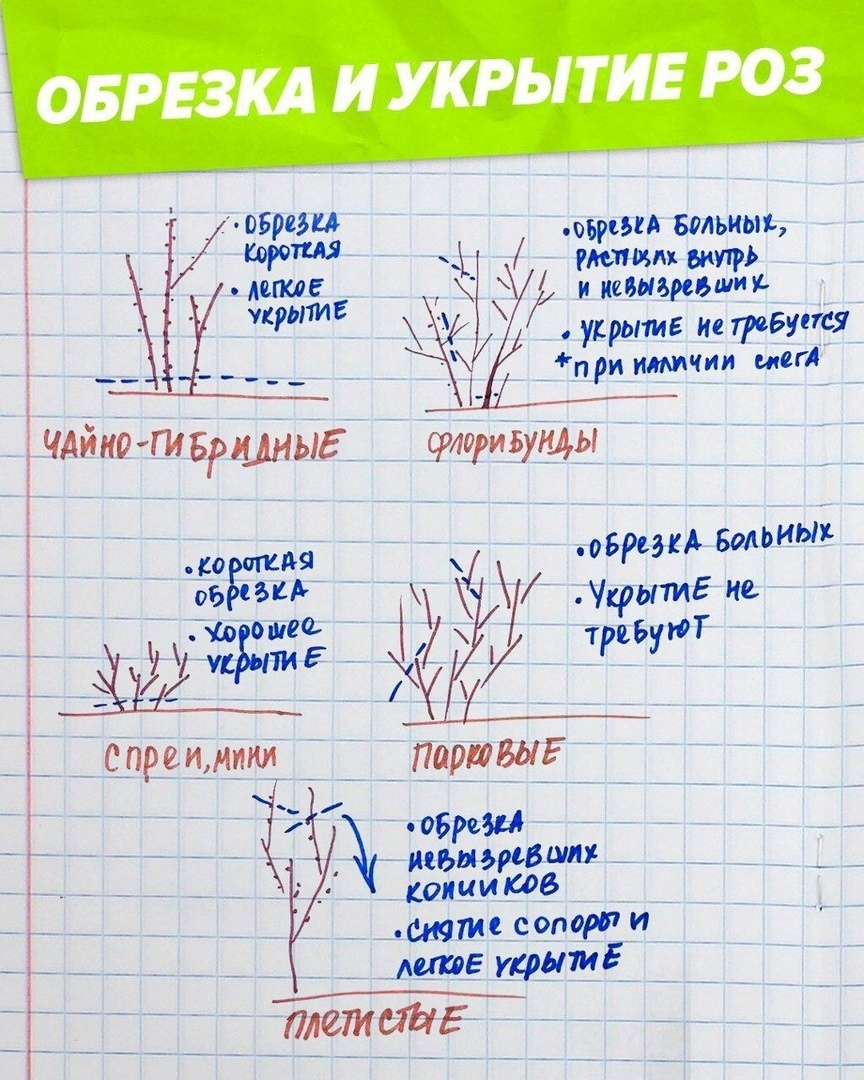 ОБРЕЗКА И УКРЫТИЕ РОЗ
• ОБРЕЗКА
КОРОТКАЯ
• ЛЕГКОЕ
УКРЫТИЕ
ЧАЙНО-ГИБРИДНЫЕ
• ОБРЕЗКА БОЛЬНЫХ,
РАСТУЩИХ ВНУТРЬ
И НЕВЫЗРЕВШИХ
• УКРЫТИЕ НЕ ТРЕБУЕТСЯ
* ПРИ НАЛИЧИИ СНЕГА
ФЛОРИБУНДЫ
• КОРОТКАЯ
ОБРЕЗКА
• ХОРОШЕЕ
УКРЫТИЕ
СПРЕИ, МИНИ
• ОБРЕЗКА БОЛЬНЫХ
• УКРЫТИЕ НЕ
ТРЕБУЮТ
ПАРКОВЫЕ
• ОБРЕЗКА
НЕВЫЗРЕВШИХ
КОНЧИКОВ
• СНЯТИЕ С ОПОРЫ И
ЛЕГКОЕ УКРЫТИЕ
ПЛЕТИСТЫЕ